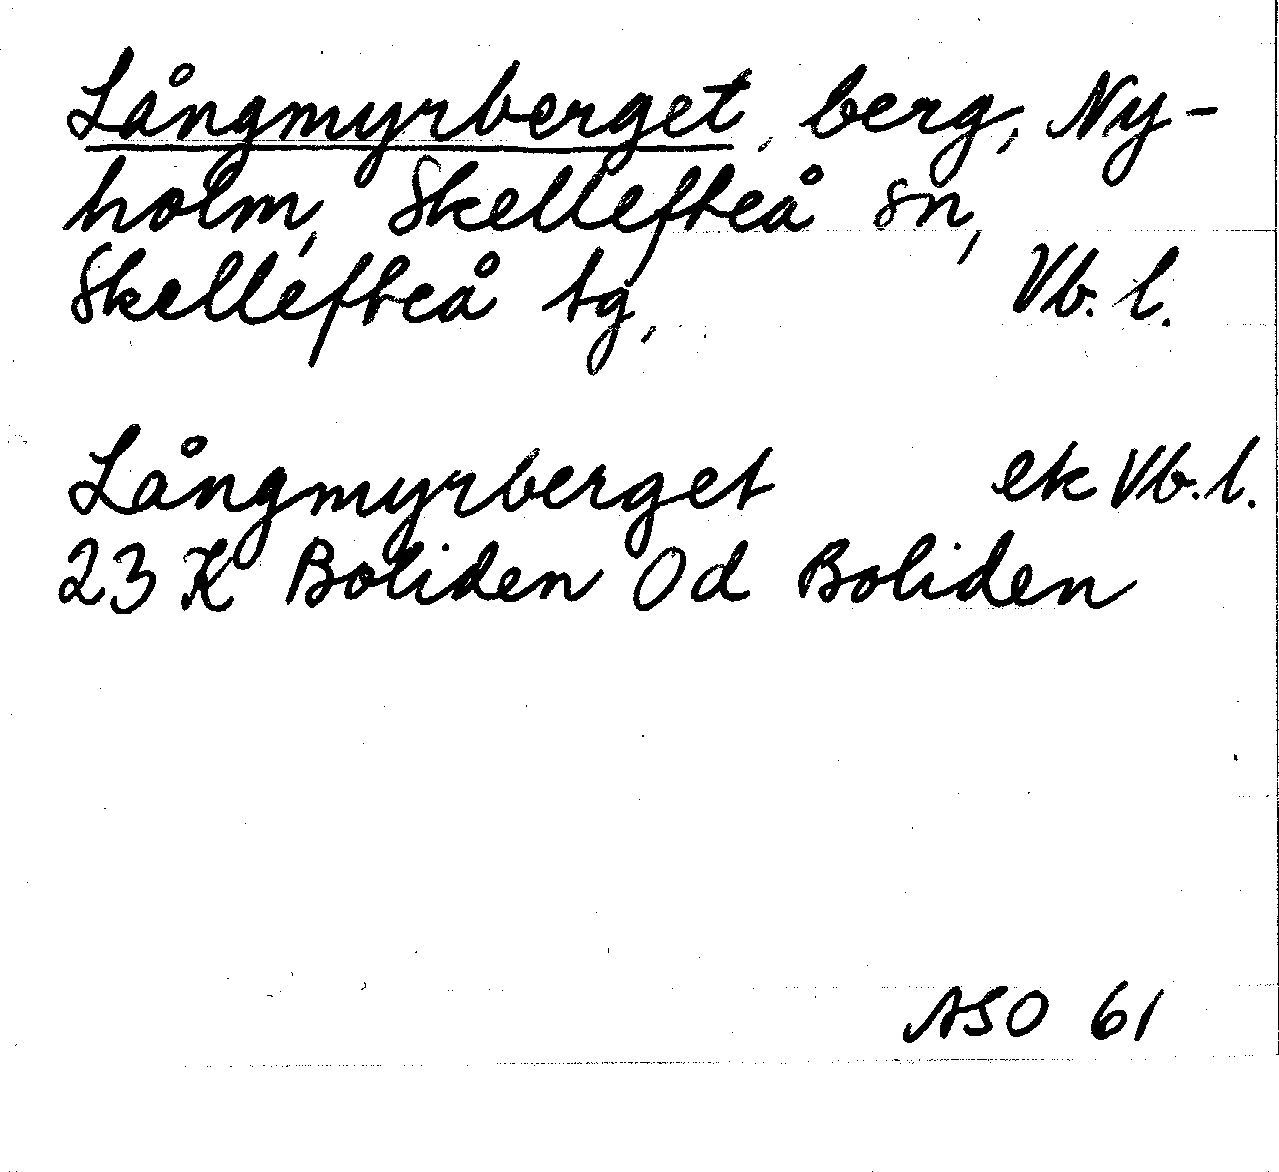 Långmyrberget, berg, Ny-
holm, Skellefteå sn,
Skellefteå tg, Vb. l.
Långmyrberget ek Vb. l.
23 K Boliden Od Boliden
ASO 61